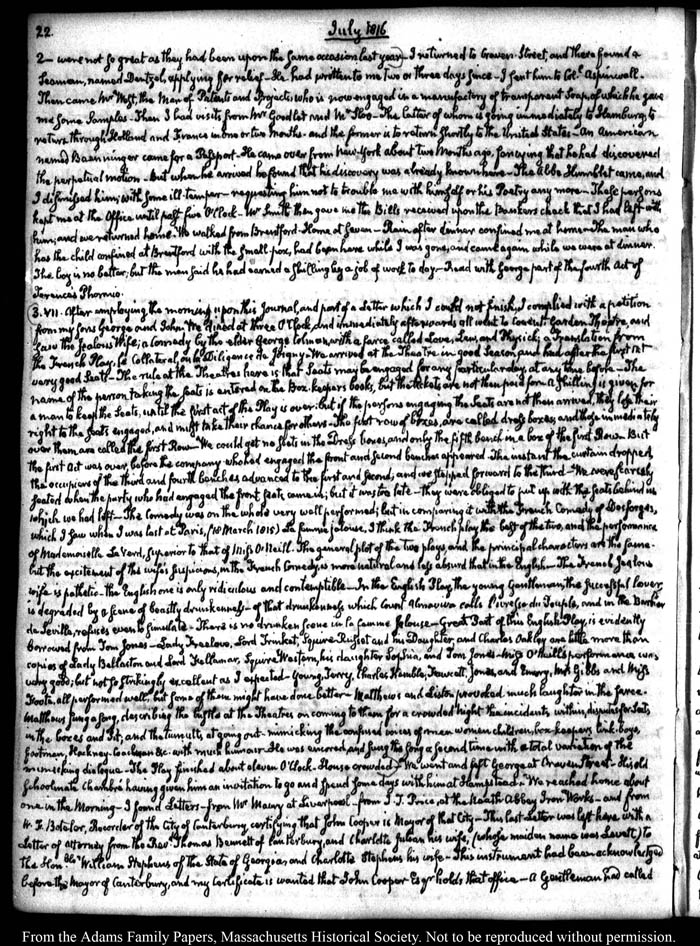 22. July 1816
2— were not so great as they had been upon the same occasion last year— I returned to Craven Street, and there found a
Seaman, named Dentzel, applying for relief— He had written to me two or three days since— I sent him to Coll. Aspinwall.
Then came Mr West, the Man of Patents and Projects who is now engaged in a manufactory of transparent Soap of which he gave
me some Samples. Then I had visits from Mr Goodlet and Mr The latter of whom is going immediately to Hamburg, to
return through Holland and France in one or two Months— and the former is to return shortly to the United States— An American
named Baenninger came for a Passport— He came over from New-York about two Months ago, fancying that he had discovered
the perpetual motion— but when he arrived he found that his discovery was already known here— The Abbe Humblet came, and
I dismissed him, with some ill-temper— requesting him not to trouble me with himself or his Poetry any more— These persons
kept me at the Office until past five O'Clock— Mr Smith then gave me the Bills received upon the Bankers check that I had left with
him; and we returned home. We walked from Brentford— Home at Seven— Rain after dinner confined me at home— The man who
has the child confined at Brentford with the Small-pox, had been here while I was gone, and came again while we were at dinner.
The boy is no better; but the man said he had earned a shilling by a job of work to day— Read with George part of the fourth Act of
Terence's Phormio.
3. VII. After employing the morning upon this Journal, and part of a Letter which I could not finish, I complied with a petition
from my Sons George and John. We dined at three O'Clock, and immediately afterwards all went to Covent Garden Theatre, and
saw the Jealous Wife; a Comedy by the elder George Colman, with a farce called Love, Law, and Physick; a Translation from
the French Play, le Collateral, ou la Diligence de Joigny— We arrived at the Theatre in good Season and had after the first Act
very good Seats— The rule at the Theatres here is that Seats may be engaged for any particular day, at any time before— The
name of the person taking the seats is entered on the Box-keepers books, but the tickets are not then paid for. a Shilling is given for
a man to keep the Seats, until the first act of the Play is over; but if the persons engaging the Seats are not then arrived, they lose their
right to the Seats engaged, and must take their chance for others— The first row of boxes, are called dress boxes, and those immediately
over them are called the first Row— We could get no Seats in the Dress boxes, and only the fifth bench in a box of the first Row— But
the first Act was over, before the company who had engaged the front and second benches appeared— The instant the curtain dropped,
the occupiers of the third and fourth benches advanced to the first and second, and we stepped forward to the third— We were scarcely
seated when the party who had engaged the front seat, came in; but it was too late— they were obliged to put up with the Seats behind us
which we had left— The Comedy was on the whole very well performed; but in comparing it with the French Comedy of Desforges,
which I saw when I was last at Paris, (10 March 1815) La femme jalouse, I think the French play the best of the two, and the performance
of Mademoiselle Le Verd, superior to that of Miss O'Neill. The general plot of the two plays, and the principal characters are the same—
but the excitement of the wife's suspicions, in the French Comedy, is more natural and less absurd than in the English— The French Jealous
wife is pathetic— the English one is only ridiculous and contemptible— In the English Play, the young Gentleman, the successful lover,
is degraded by a scene of beastly drunkenness— of that drunkenness which Count Almaviva calls l'ivresse du Peuple, and in the Barbier
de Seville, refuses even to simulate— There is no drunken scene in la femme Jalouse— Great Part of this English Play, is evidently
borrowed from Tom Jones— Lady Freelove, Lord Trinket, Squire Russet and his Daughter, and Charles Oakley are little more than
copies of Lady Bellaston and Lord Fellamar, Squire Western, his daughter Sophia, and Tom Jones— Miss O'Neill's performance was
very good; but not so strikingly excellent as I expected— Young, Terry, Charles Kemble, Fawcett, Jones, and Emery, Mrs Gibbs and Miss
Foote, all performed well; but some of them might have done better— Matthews and Liston, provoked much laughter in the farce.
Matthews sung a song, describing the bustle at the Theatres on coming to them for a crowded Night the incidents within, disputes for Seats
in the boxes and Pit, and the tumults, at going out— mimicking the confused voices of men women children, box-keepers, link-boys,
footmen, Hackney-Coachmen &c. with much humour. He was encored, and sung the song a second time with a total variation of the
mimicking dialogue— The Play finished about eleven O'Clock. House crowded. We went and left George at Craven Street— His old
Schoolmate Chambré having given him an invitation to go and spend some days with him at Hampstead. We reached home about
one in the Morning— I found Letters— from Mr Maury at Liverpool— from J. T. Price, at the Neath Abbey Iron Works— and from
W. F. Boteler, Recorder of the City of Canterbury, certifying that John Cooper is Mayor of that City— This last Letter was left here, with a
Letter of attorney from the Revd. Thomas Bennett of Canterbury, and Charlotte Julian his wife, (whose maiden name was Lavett) to
the Honble William Stephens of the State of Georgia, and Charlotte Stephens his wife— This instrument had been acknowledged
before the Mayor of Canterbury, and my certificate is wanted that John Cooper Esqr holds that office— A Gentleman had called
From the Adams Family Papers, Massachusetts Historical Society. Not to be reproduced without permission.